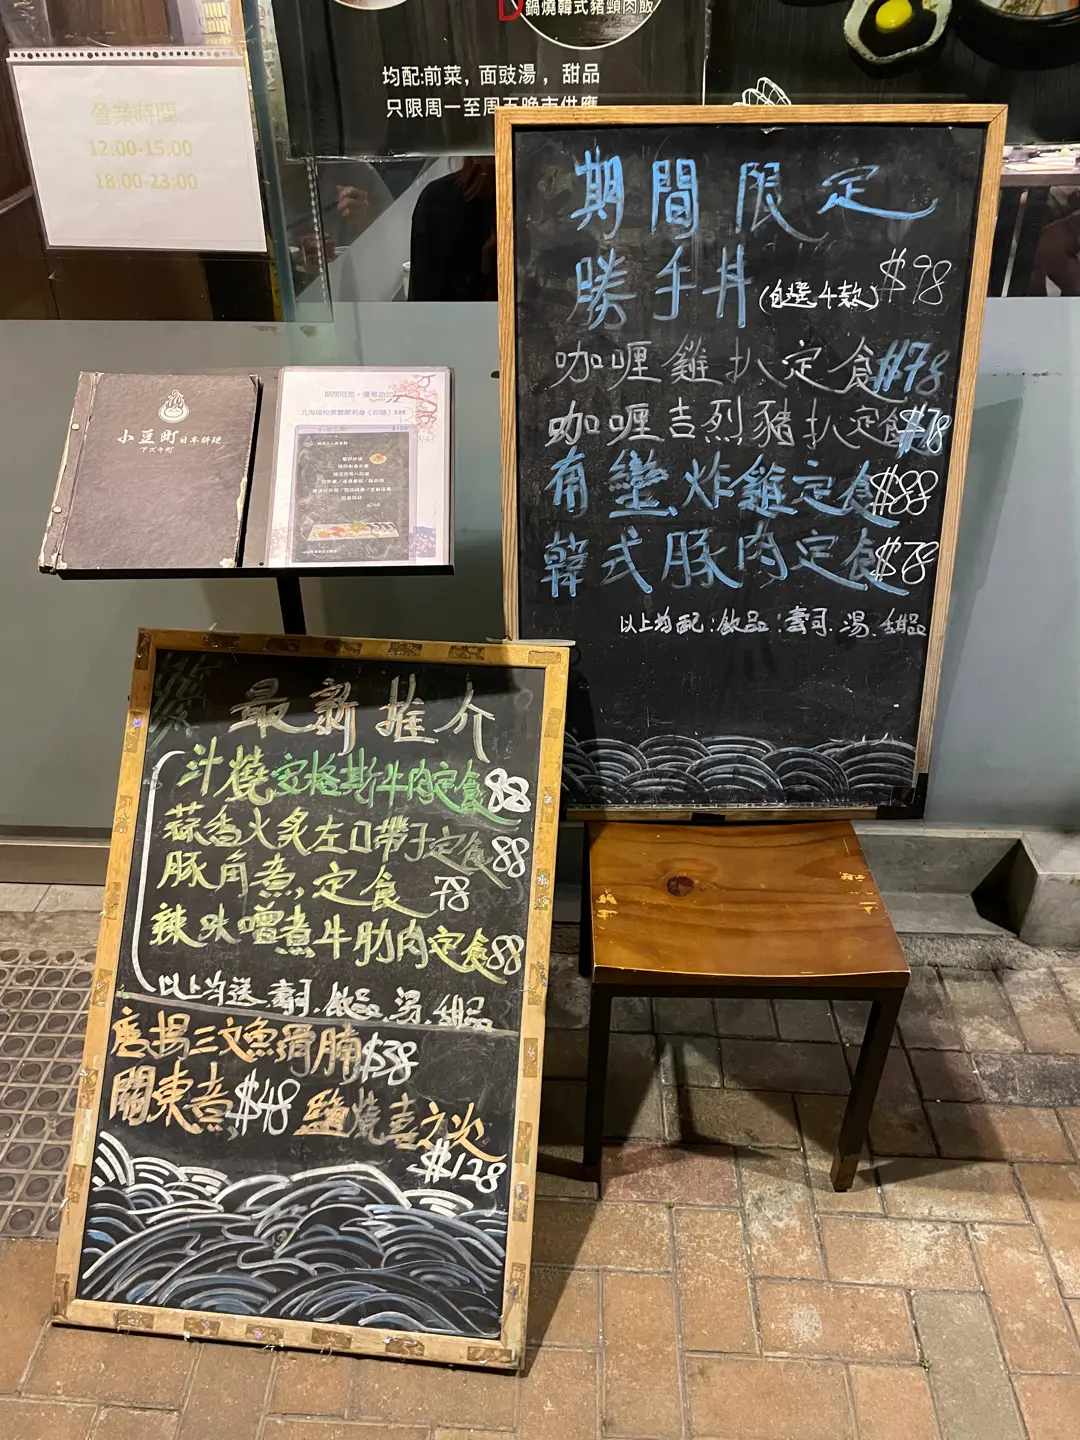 鍋燒韓式豬頸肉飯
均配:前菜，面豉湯，甜品
只限周一至周五晚市供應
營業時間
12:00-15:00
18:00-23:00
小豆町日本料理
アズキ町
期間限定
勝手丼(自選4款)$98
咖喱雞扒定食$78
咖喱吉烈豬扒定食$78
南蠻炸雞定食$88
韓式豚肉定食$78
以上均配:飲品.壽司.湯.甜品
最新推介
汁燒安格斯牛肉定食88
蒜香火炙左口帶子定食88
豚角煮定食78
辣味噌煮牛肋肉定食88
以上均送.壽司.飲品.湯.甜品
唐揚三文魚骨腩$38
關東煮$48 鹽燒喜之次
$128